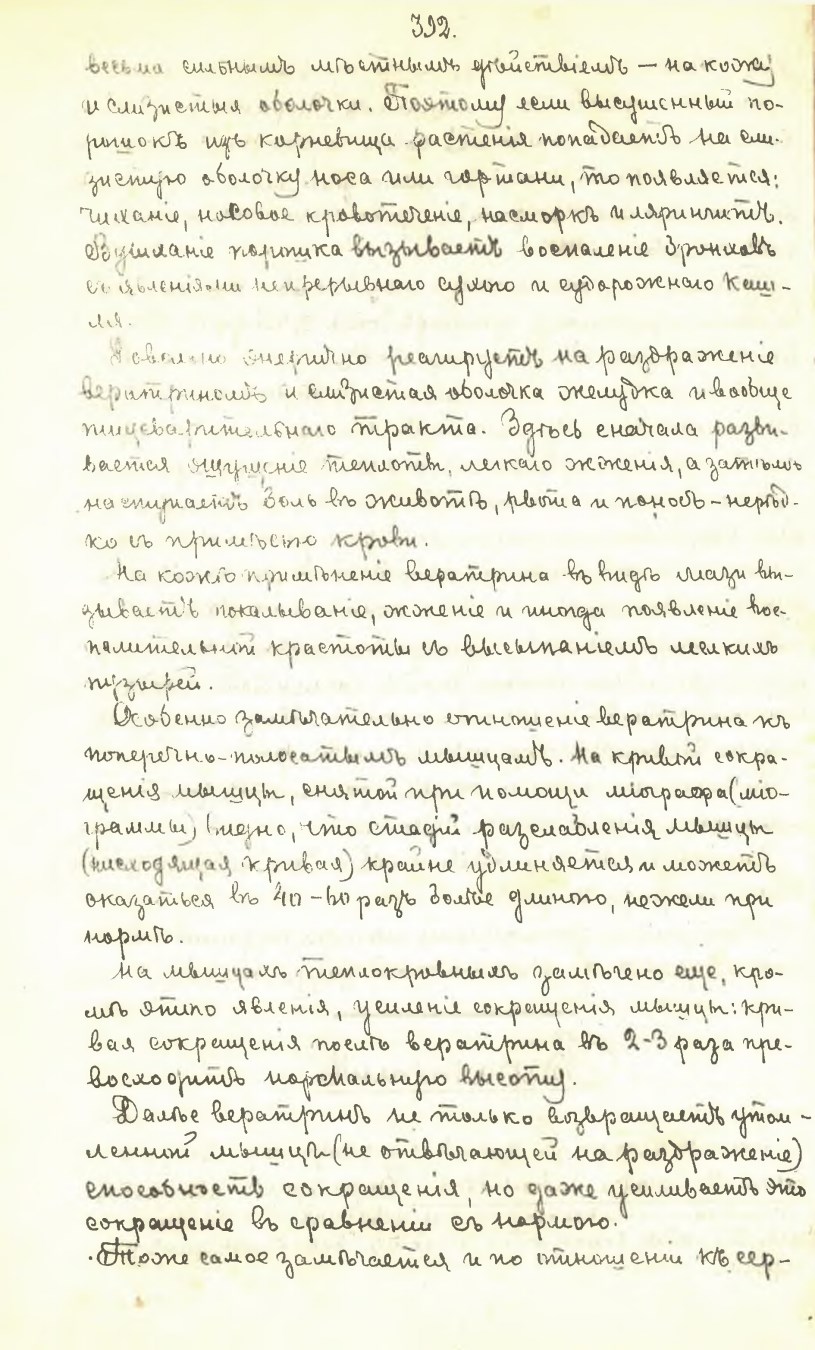 392.
весьма сильнымъ мѣстнымъ дѣйствіемъ – на кожу
и слизистыя оболочки. Поэтому если высушенный по-
рошокъ изъ корневища растенія попадаетъ на сли-
зистую оболочку носа или гортани, то появляется:
чиханіе, носовое кровотеченіе, насморкъ и лярингитъ.
Вдыханіе порошка вызываетъ воспаленіе бронховъ
съ явленіями непрерывнаго сухого и судорожнаго каш-
ля.
Довольно энергично реагируетъ на раздраженіе
вератриномъ и слизистая оболочка желудка и вообще
пищеварительнаго тракта. Здѣсь сначала разви-
вается ощущеніе теплоты, легкаго жженія, а затѣмъ
наступаетъ боль въ животѣ, рвота и поносъ – нерѣд-
ко съ примѣсью крови.
На кожѣ примѣненіе вератрина въ видѣ мази вы-
зываетъ покалываніе, жженіе и иногда появленіе вос-
палительной красноты съ высыпаніемъ мелкихъ
пузырей.
Особенно замѣчательно отношеніе вератрина къ
поперечно-полосатымъ мышцамъ. На кривой сокра-
щенія мышцы, снятой при помощи міографа (міо-
граммы) видно, что стадій разслабленія мышцы
(нисходящая кривая) крайне удлиняется и можетъ
оказаться въ 40–60 разъ болѣе длиною, нежели при
нормѣ.
На мышцахъ теплокровныхъ замѣчено еще, кро-
мѣ этого явленія, усиленіе сокращенія мышцы: кри-
вая сокращенія послѣ вератрина въ 2-3 раза пре-
восходитъ нормальную высоту.
Далѣе вератринъ не только возвращаетъ утом-
ленной мышцѣ (не отвѣчающей на раздраженіе)
способность сокращенія, но даже усиливаетъ это
сокращеніе въ сравненіи съ нормою.
Тоже самое замѣчается и по отношенію къ сер-